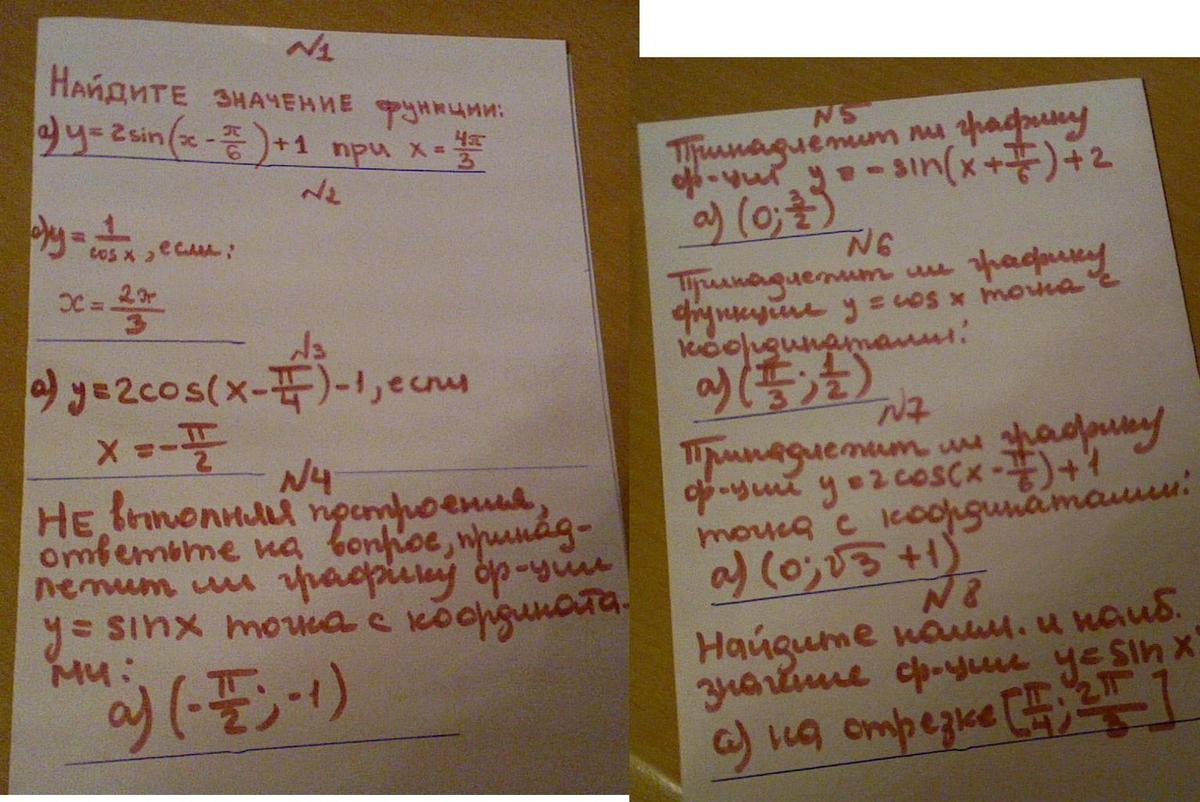 №1
НАЙДИТЕ ЗНАЧЕНИЕ функции:
а) y=2sin(x-π/6)+1 при x=4π/3
№2
а) y=1/cosx, если:
x=2π/3
№3
а) y=2cos(x-π/4)-1, если
x=-π/2
№4
НЕ выполняя построения,
ответьте на вопрос, принад-
лежит ли графику ф-ции
y=sinx точка с координата-
ми:
а) (-π/2; -1)
№5
Принадлежит ли графику
ф-ции y=-sin(x+π/6)+2
а) (0; 3/2)
№6
Принадлежит ли графику
функции y=cos x точка с
координатами:
а) (π/3; 1/2)
№7
Принадлежит ли графику
ф-ции y=2cos(x-π/6)+1
точка с координатами:
а) (0; √3+1)
№8
Найдите наим. и наиб.
значение ф-ции y=sin x,
а) на отрезке [π/4; 2π/3]